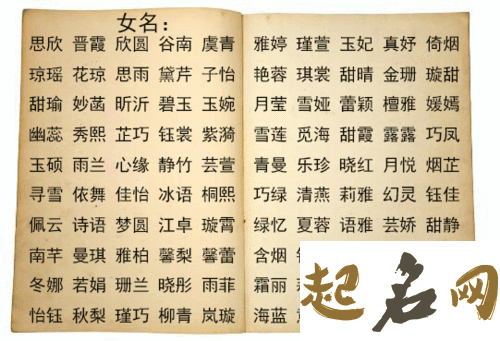 女名：
思欣 晋霞 欣圆 谷南 虞青 雅婷 瑾萱 玉妃 真妤 倚烟
琼瑶 花琼 思雨 黛芹 子怡 艳蓉 琪裳 甜晴 金珊 璇甜
甜瑜 妙菡 昕沂 碧玉 玉婉 月莹 雪娅 蕾颖 檀雅 媛嫣
幽蕊 秀熙 芷巧 钰裳 紫漪 雪莲 觅海 甜霞 露露 巧凤
玉硕 雨兰 心缘 静竹 芸萱 青曼 乐珍 晓红 月悦 烟芷
寻雪 依舞 佳怡 冰语 桐熙 巧绿 清燕 莉雅 幻灵 钰佳
佩云 诗语 梦圆 江卓 璇霄 绿忆 夏蓉 语雅 芸娇 甜静
南芊 曼琪 雅柏 馨梨 馨蕾 含烟
冬娜 若娟 珊兰 晓彤 雨菲 霜丽
怡钰 秋梨 瑾巧 柳青 岚璇 海蓝
起名网